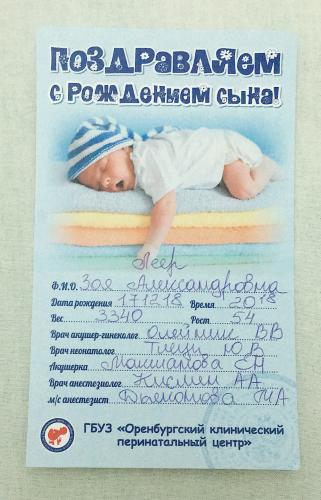 ПОЗДРАВЛЯЕМ
С РОЖДЕНИЕМ СЫНА!
Леер
Ф.И.О. Зоя Александровна
Дата рождения 17.12.18 Время 2018
Вес 3340 Рост 54
Врач акушер-гинеколог Олейник ВВ
Врач неонатолог Ю В
Акушерка СН
Врач анестезиолог Кислин АА
м/с анестезист Дьяконова МА
ГБУЗ «Оренбургский клинический
перинатальный центр»